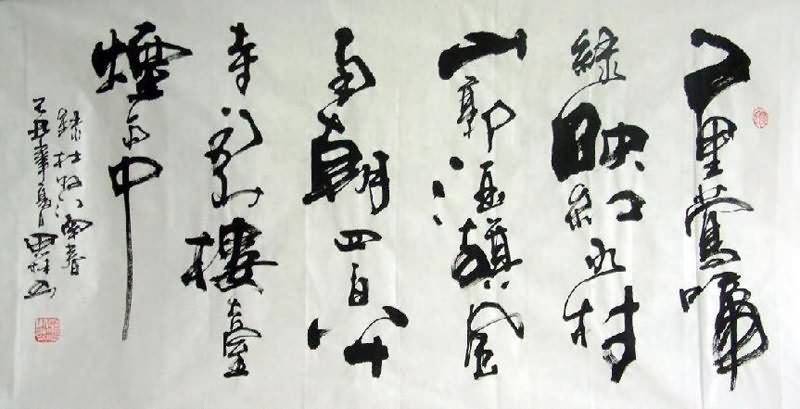 千里鶯啼
綠映紅水村
山郭酒旗風
南朝四百八十
寺多少樓臺
煙雨中
錄杜牧江南春
丑夏書